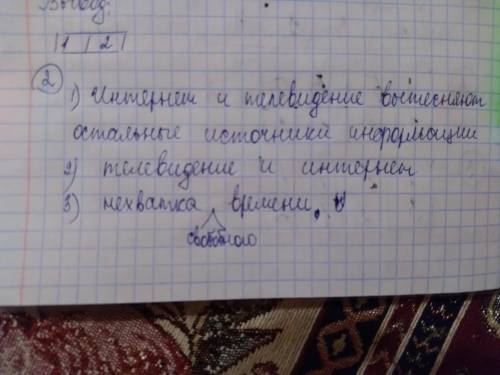 Вывод:
1 2
2
1) Интернет и телевидение вытесняют
остальные источники информации
2) телевидение и интернет
3) нехватка времени.
свободного